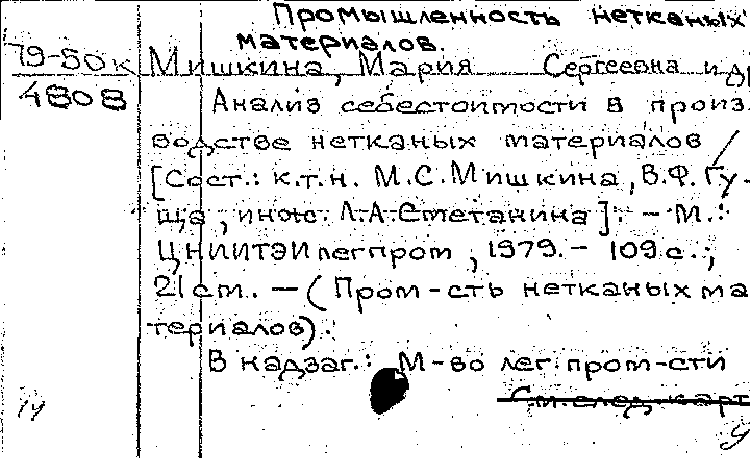 Промышленность нетканых
материалов.
79-50к Мишкина, Мария Сергеевна и др
4808 Анализ себестоимости в произ.
водстве нетканых материалов /
[Сост.: к.т.н. М.С.Мишкина, В.Ф. Гу-
ща, инж. Л.А.Сметанина]. - М.:
ЦНИИТЭИлегпром, 1979. - 109 с.;
21 см. - (Пром-сть нетканых ма
териалов).
В надзаг.: М-во лег. пром-сти
См.след.карт
14